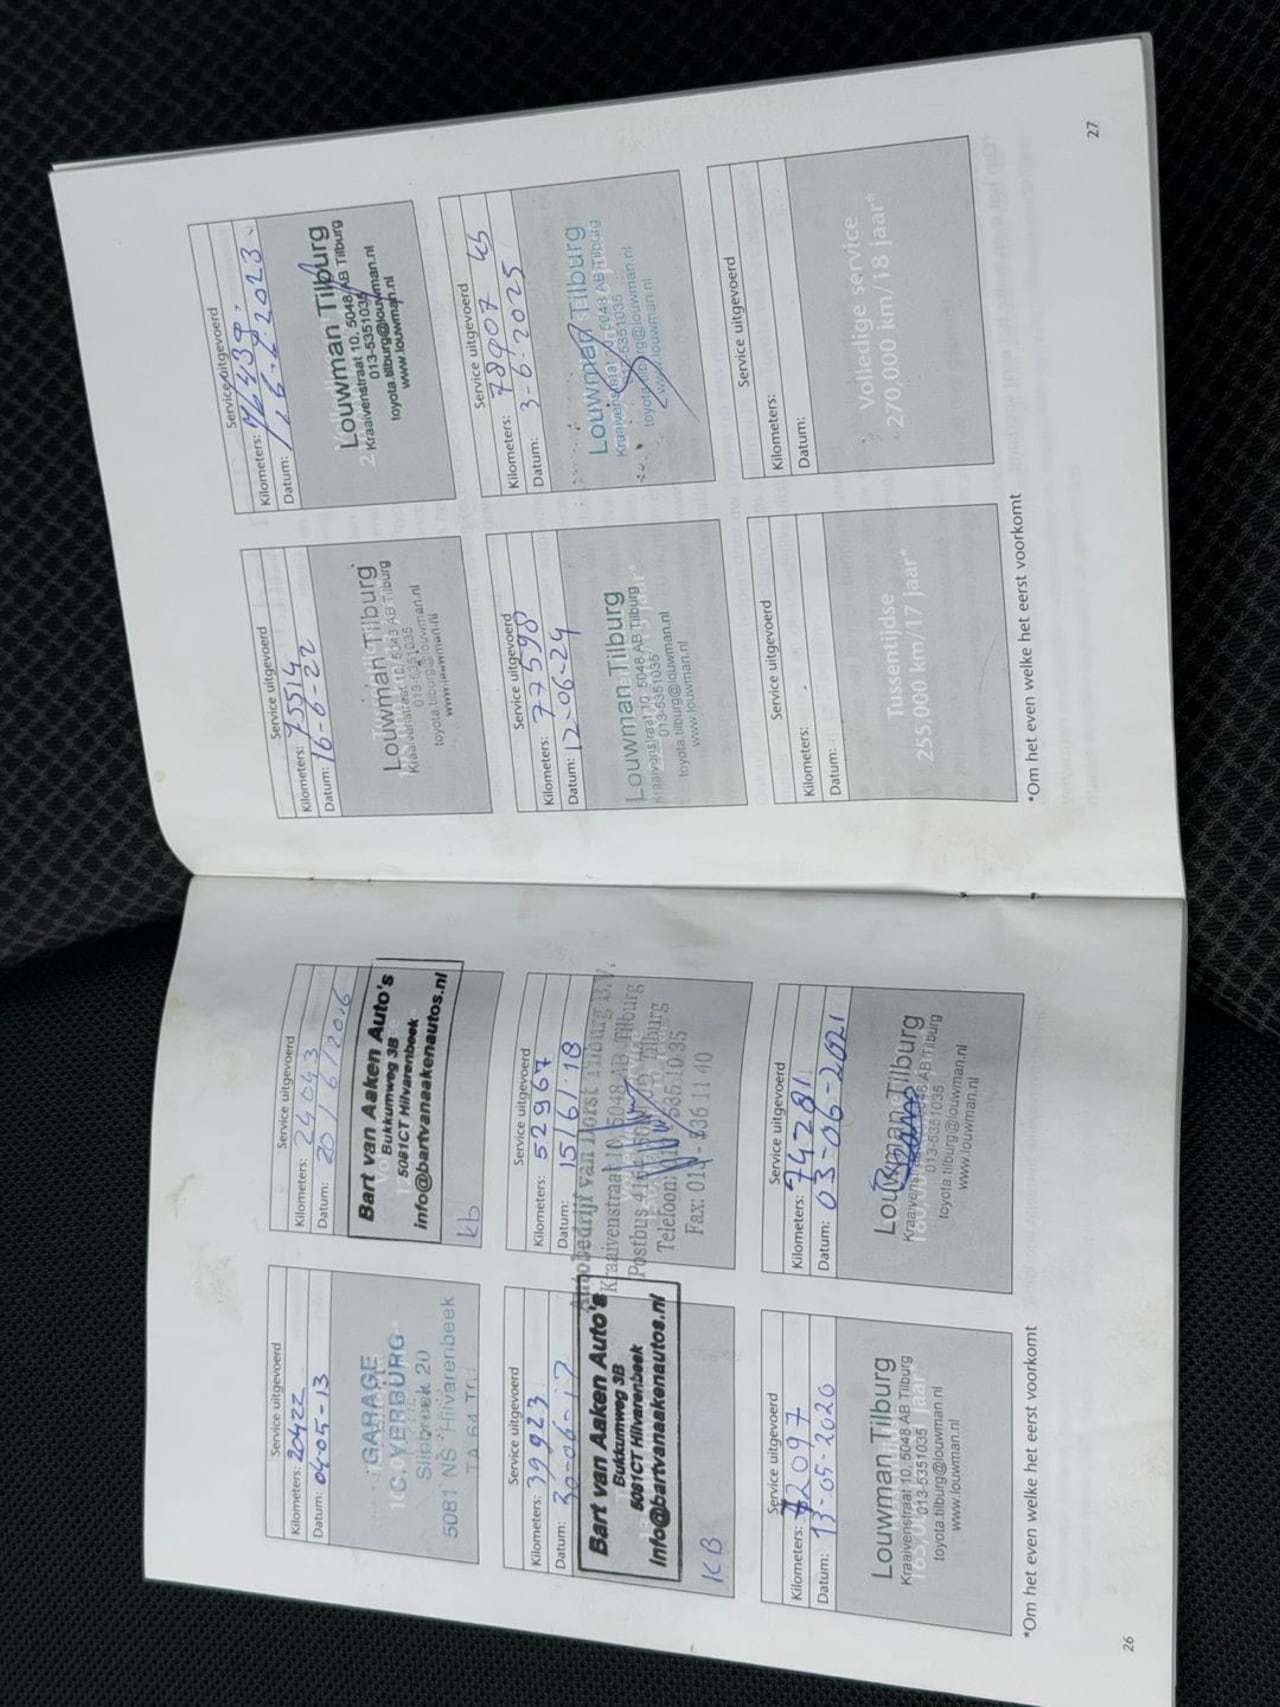 Service uitgevoerd
Kilometers: 20422
Datum: 04-05-13
GARAGE
C. OVERBURG
Slibbroek 20
5081 NS Hilvarenbeek
Service uitgevoerd
Kilometers: 24043
Datum: 20/6/2016
Bart van Aaken Auto's
Bukkumweg 3B
5081CT Hilvarenbeek
info@bartvanaakenautos.nl
kb
Service uitgevoerd
Kilometers: 39923
Datum: 30-06-17
Bart van Aaken Auto's
Bukkumweg 3B
5081CT Hilvarenbeek
info@bartvanaakenautos.nl
KB
Service uitgevoerd
Kilometers: 52967
Datum: 15/6/18
Autobedrijf van Horst Tilburg B.V.
Kraaivenstraat 10 5048 AB Tilburg
Postbus Tilburg
Telefoon: 535 10 35
Fax: 013 - 536 11 40
Service uitgevoerd
Kilometers: 72097
Datum: 13-05-2020
Louwman Tilburg
Kraaivenstraat 10, 5048 AB Tilburg
013-5351035
toyota.tilburg@louwman.nl
www.louwman.nl
Service uitgevoerd
Kilometers: 74281
Datum: 03-06-2021
Louwman Tilburg
Kraaivenstraat 5048 AB Tilburg
013-5351035
toyota.tilburg@louwman.nl
www.louwman.nl
*Om het even welke het eerst voorkomt
26
Service uitgevoerd
Kilometers: 75514
Datum: 16-6-22
Louwman Tilburg
Kraaivenstraat 10, 5048 AB Tilburg
013-5351035
toyota.tilburg@louwman.nl
www.louwman.nl
Service uitgevoerd
Kilometers: 76439
Datum: 16-6-2023
Louwman Tilburg
Kraaivenstraat 10, 5048 AB Tilburg
013-5351035
toyota.tilburg@louwman.nl
www.louwman.nl
Service uitgevoerd
Kilometers: 77598
Datum: 12-06-24
Louwman Tilburg
Kraaivenstraat 10, 5048 AB Tilburg
013-5351035
toyota.tilburg@louwman.nl
www.louwman.nl
Service uitgevoerd
Kilometers: 78907
Datum: 3-6-2025
Louwman Tilburg
Kraaivenstraat 5048 AB Tilburg
013-5351035
toyota.tilburg@louwman.nl
www.louwman.nl
Service uitgevoerd
Kilometers:
Datum:
Tussentijdse
255,000 km/17 jaar*
Service uitgevoerd
Kilometers:
Datum:
Volledige service
270,000 km/18 jaar*
*Om het even welke het eerst voorkomt
27